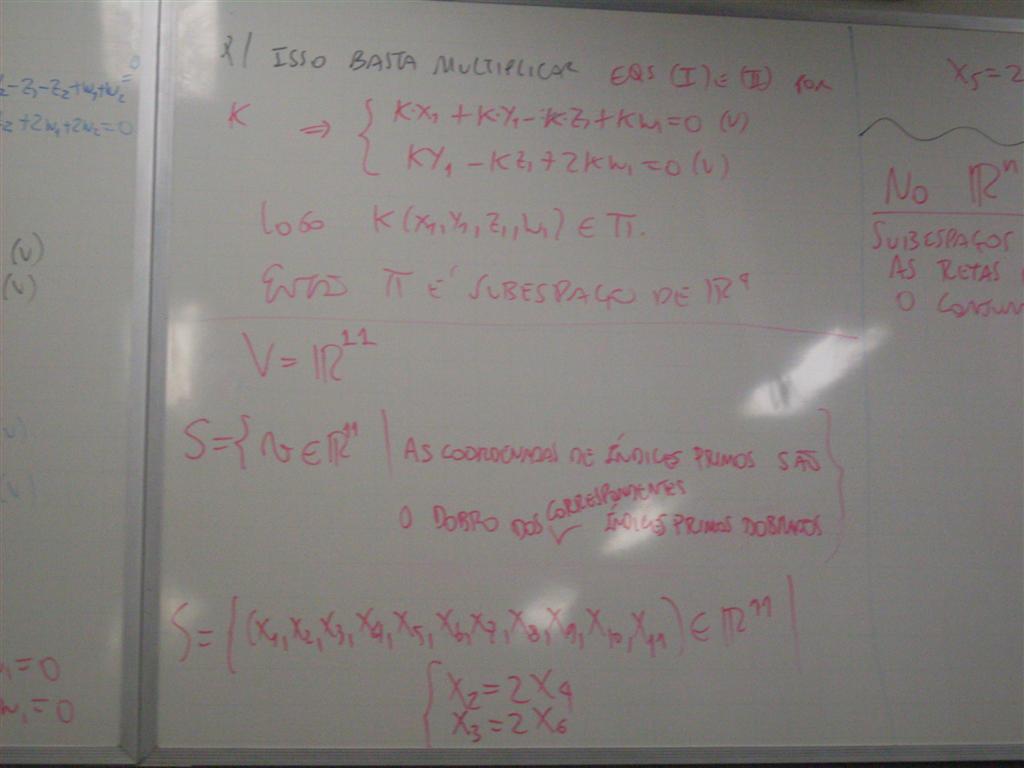 2-Z₁-Z₂+W₁+W₂=0
Z₂+2W₁+2W₂=0
(V)
(V)
(V)
W₁=0
P/ ISSO BASTA MULTIPLICAR EQS (I) E (II) POR
K ⇒ { K·X₁+K·Y₁-K·Z₁+KW₁=0 (V)
KY₁-KZ₁+2KW₁=0 (V)
LOGO K(X₁,Y₁,Z₁,W₁) ∈ π.
ENTÃO π É SUBESPAÇO DE ℝ⁴
V=ℝ¹¹
S={v∈ℝ¹¹ | AS COORDENADAS DE ÍNDICES PRIMOS SÃO
O DOBRO DOS CORRESPONDENTES ÍNDICES PRIMOS DOBRADOS}
S={(X₁,X₂,X₃,X₄,X₅,X₆,X₇,X₈,X₉,X₁₀,X₁₁)∈ℝ¹¹|
{ X₂=2X₄
X₃=2X₆
X₅=2
NO ℝⁿ
SUBESPAÇOS
AS RETAS
O CONJUN